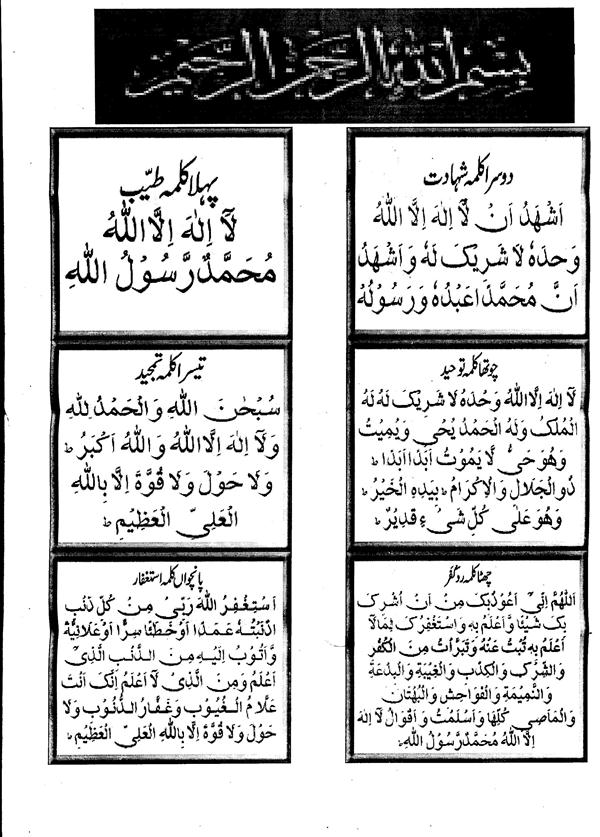 بسم الله الرحمن الرحيم
پہلا کلمہ طیّب
لَآ اِلٰهَ اِلَّا اللّٰهُ
مُحَمَّدٌ رَّسُوْلُ اللّٰهِ
دوسرا کلمہ شہادت
اَشْهَدُ اَنْ لَّآ اِلٰهَ اِلَّا اللّٰهُ
وَحْدَهٗ لَا شَرِیْکَ لَهٗ وَاَشْهَدُ
اَنَّ مُحَمَّدًا عَبْدُهٗ وَرَسُوْلُهٗ
تیسرا کلمہ تمجید
سُبْحٰنَ اللّٰهِ وَالْحَمْدُ لِلّٰهِ
وَلَآ اِلٰهَ اِلَّا اللّٰهُ وَاللّٰهُ اَکْبَرُ ط
وَلَا حَوْلَ وَلَا قُوَّةَ اِلَّا بِاللّٰهِ
الْعَلِیِّ الْعَظِیْمِ ط
چوتھا کلمہ توحید
لَآ اِلٰهَ اِلَّا اللّٰهُ وَحْدَهٗ لَا شَرِیْکَ لَهٗ لَهُ
الْمُلْکُ وَلَهُ الْحَمْدُ یُحْیٖ وَیُمِیْتُ
وَهُوَ حَیٌّ لَّا یَمُوْتُ اَبَدًا اَبَدًا ط
ذُوالْجَلَالِ وَالْاِکْرَامِ ط بِیَدِهِ الْخَیْرُ ط
وَهُوَ عَلٰی کُلِّ شَیْءٍ قَدِیْرٌ ط
پانچواں کلمہ استغفار
اَسْتَغْفِرُ اللّٰهَ رَبِّیْ مِنْ کُلِّ ذَنْۢبٍ
اَذْنَبْتُهٗ عَمَدًا اَوْ خَطَئًا سِرًّا اَوْ عَلَانِیَةً
وَّاَتُوْبُ اِلَیْهِ مِنَ الذَّنْۢبِ الَّذِیْٓ
اَعْلَمُ وَمِنَ الَّذِیْ لَآ اَعْلَمُ اِنَّکَ اَنْتَ
عَلَّامُ الْغُیُوْبِ وَغَفَّارُ الذُّنُوْبِ وَلَا
حَوْلَ وَلَا قُوَّةَ اِلَّا بِاللّٰهِ الْعَلِیِّ الْعَظِیْمِ ط
چھٹا کلمہ ردِّ کفر
اَللّٰهُمَّ اِنِّیْٓ اَعُوْذُبِکَ مِنْ اَنْ اُشْرِکَ
بِکَ شَیْئًا وَّاَعْلَمُ بِهٖ وَاسْتَغْفِرُکَ لِمَا لَآ
اَعْلَمُ بِهٖ تُبْتُ عَنْهُ وَتَبَرَّأْتُ مِنَ الْکُفْرِ
وَالشِّرْکِ وَالْکِذْبِ وَالْغِیْبَةِ وَالْبِدْعَةِ
وَالنَّمِیْمَةِ وَالْفَوَاحِشِ وَالْبُهْتَانِ
وَالْمَاصِیْ کُلِّهَا وَاَسْلَمْتُ وَاَقُوْلُ لَآ اِلٰهَ
اِلَّا اللّٰهُ مُحَمَّدٌ رَّسُوْلُ اللّٰهِ ط